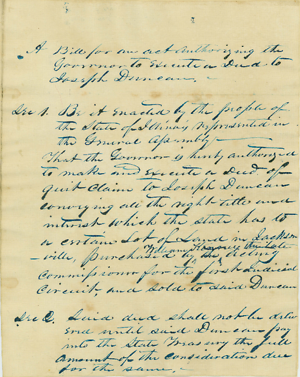 A Bill for an act authorizing the
Governor to execute a Deed to
Joseph Duncan. -
Sec 1. Be it enacted by the people of
the State of Illinois represented in
the General Assembly
That the Governor is hereby authorized
to make and execute a deed of
quit claim to Joseph Duncan
conveying all the right title and
interest which the state has to
a certain Lot of Land in Jackson
ville, purchased by the acting
Commissioner for the first Judicial
Circuit and sold to said Duncan
Sec 2. Said deed shall not be deliv
ered until said Duncan pay
into the State Treasury the full
amount of the consideration due
for the same. -